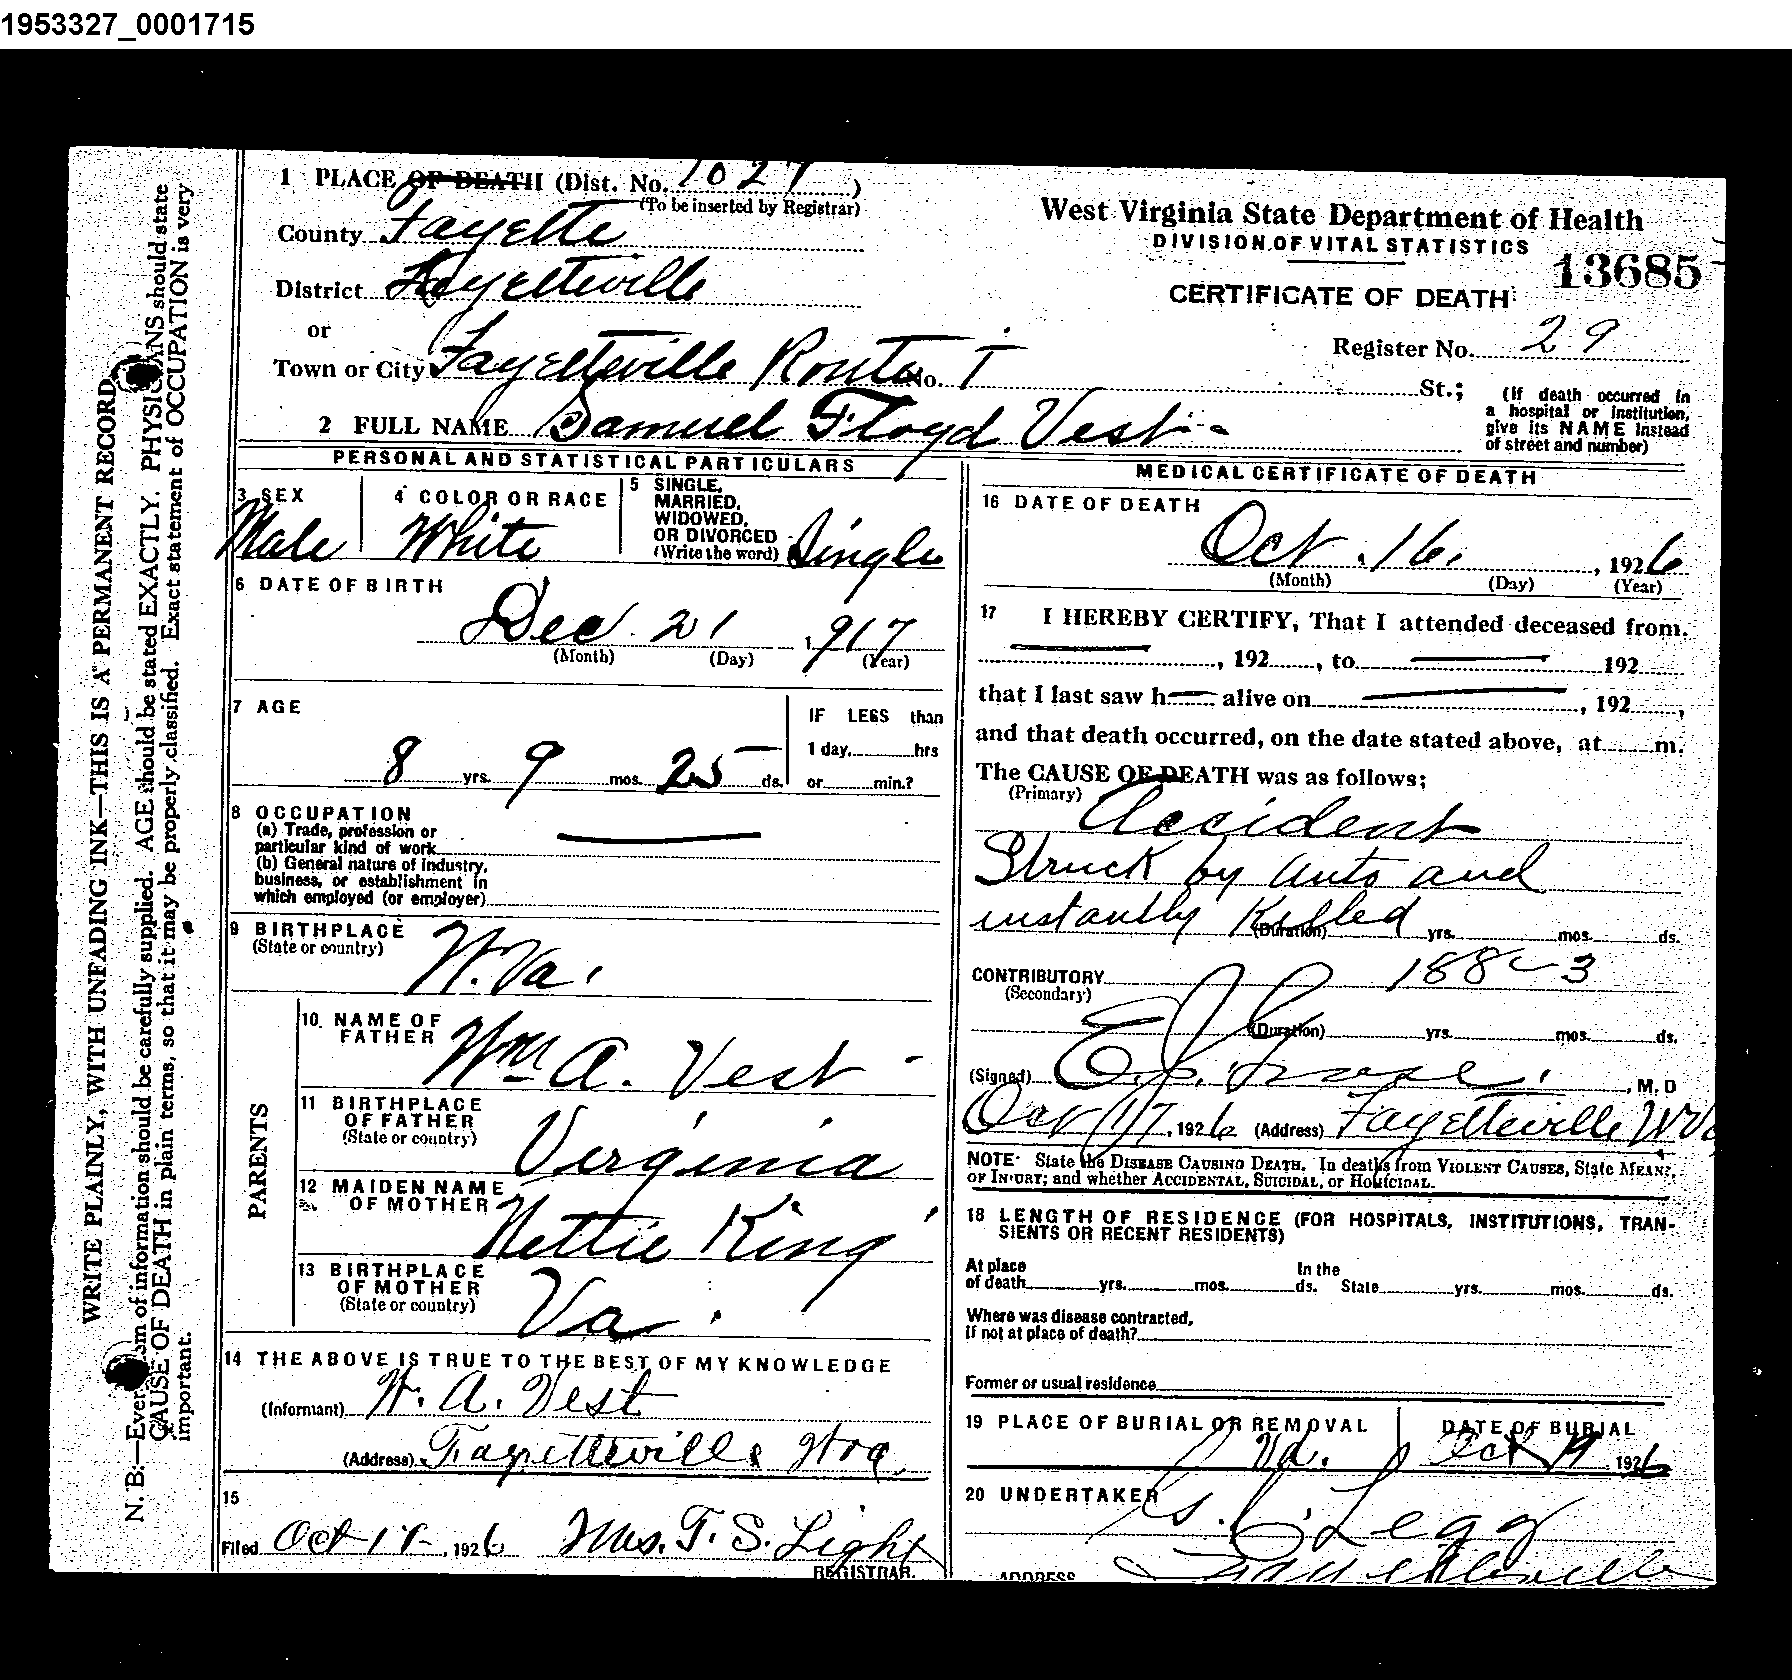 1953327_0001715
1 PLACE OF DEATH (Dist. No. 1027)
(To be inserted by Registrar)
County Fayette
District Fayetteville
or
Town or City Fayetteville Route No. 1 St.;
(If death occurred in a hospital or institution, give its NAME instead of street and number)
West Virginia State Department of Health
DIVISION OF VITAL STATISTICS
13685
CERTIFICATE OF DEATH
Register No. 29
2 FULL NAME Samuel Floyd Vest
PERSONAL AND STATISTICAL PARTICULARS
3 SEX
Male
4 COLOR OR RACE
White
5 SINGLE, MARRIED, WIDOWED, OR DIVORCED (Write the word) Single
6 DATE OF BIRTH
Dec. 21 1917
(Month) (Day) (Year)
7 AGE
8 yrs. 9 mos. 25 ds.
IF LESS than
1 day, hrs
or min.?
8 OCCUPATION
(a) Trade, profession or
particular kind of work
(b) General nature of industry,
business, or establishment in
which employed (or employer)
9 BIRTHPLACE
(State or country) W. Va.
PARENTS
10 NAME OF FATHER Wm A. Vest
11 BIRTHPLACE OF FATHER
(State or country) Virginia
12 MAIDEN NAME OF MOTHER Nettie King
13 BIRTHPLACE OF MOTHER
(State or country) Va.
14 THE ABOVE IS TRUE TO THE BEST OF MY KNOWLEDGE
(Informant) W. A. Vest
(Address) Fayetteville Wva
15
Filed Oct 1, 1926 Mrs. T. S. Light
REGISTRAR.
MEDICAL CERTIFICATE OF DEATH
16 DATE OF DEATH
Oct. 16, 1926
(Month) (Day) (Year)
17 I HEREBY CERTIFY, That I attended deceased from
, 192 , to 192
that I last saw h alive on , 192 ,
and that death occurred, on the date stated above, at m.
The CAUSE OF DEATH was as follows;
(Primary) Accident
Struck by auto and
instantly Killed
(Duration) yrs. mos. ds.
CONTRIBUTORY 188 3
(Secondary)
(Duration) yrs. mos. ds.
(Signed) , M. D
Oct 17, 1926 (Address) Fayetteville W Va
NOTE State the DISEASE CAUSING DEATH. In deaths from VIOLENT CAUSES, State MEANS
OF INJURY; and whether ACCIDENTAL, SUICIDAL, or HOMICIDAL.
18 LENGTH OF RESIDENCE (FOR HOSPITALS, INSTITUTIONS, TRAN-
SIENTS OR RECENT RESIDENTS)
At place of death yrs. mos. ds. In the State yrs. mos. ds.
Where was disease contracted,
if not at place of death?
Former or usual residence
19 PLACE OF BURIAL OR REMOVAL
Va.
DATE OF BURIAL
Oct 1926
20 UNDERTAKER Legg
ADDRESS Fayetteville
WRITE PLAINLY, WITH UNFADING INK—THIS IS A PERMANENT RECORD
N. B.—Every item of information should be carefully supplied. AGE should be stated EXACTLY. PHYSICIANS should state
CAUSE OF DEATH in plain terms, so that it may be properly classified. Exact statement of OCCUPATION is very
important.